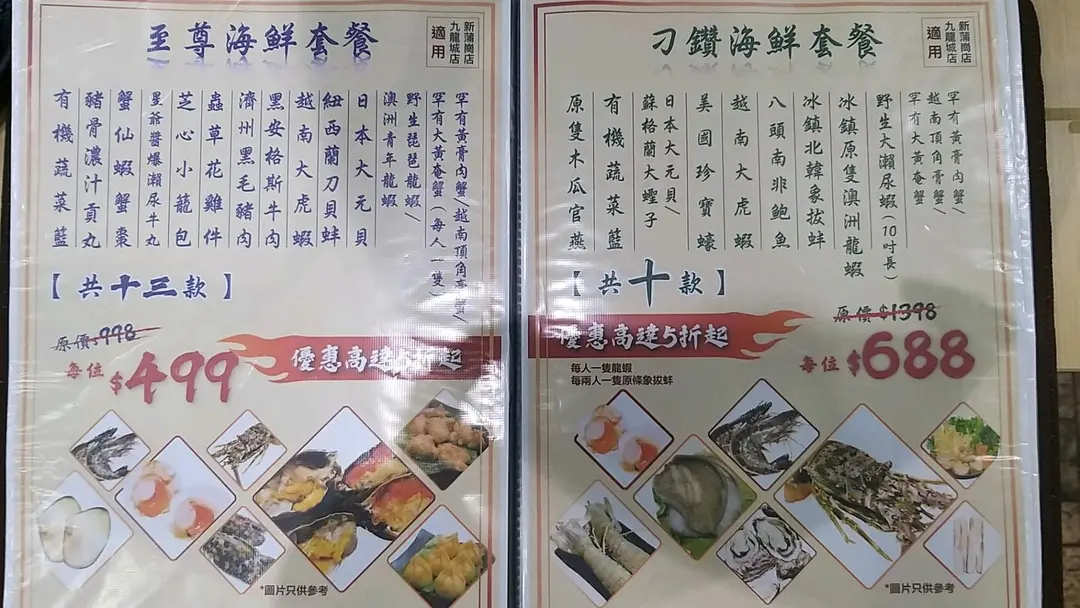 至尊海鮮套餐
新蒲崗店
九龍城店
適用
罕有黃膏肉蟹/越南頂角膏蟹/
罕有大黃奄蟹(每人一隻)
野生琵琶龍蝦/
澳洲青年龍蝦
日本大元貝
紐西蘭刀貝蚌
越南大虎蝦
黑安格斯牛肉
濟州黑毛豬肉
蟲草花雞件
芝心小籠包
星爺醬爆瀨尿牛丸
蟹仙蝦蟹棗
豬骨濃汁貢丸
有機蔬菜籃
【共十三款】
原價$998
每位$499
優惠高達5折起
刁鑽海鮮套餐
新蒲崗店
九龍城店
適用
罕有黃膏肉蟹/
越南頂角膏蟹/
罕有大黃奄蟹
野生大瀨尿蝦(10吋長)
冰鎮原隻澳洲龍蝦
冰鎮北韓象拔蚌
八頭南非鮑魚
越南大虎蝦
美國珍寶蠔
日本大元貝/
蘇格蘭大蟶子
有機蔬菜籃
原隻木瓜官燕
【共十款】
原價$1398
優惠高達5折起
每位$688
每人一隻龍蝦
每兩人一隻原條象拔蚌
*圖片只供參考
*圖片只供參考